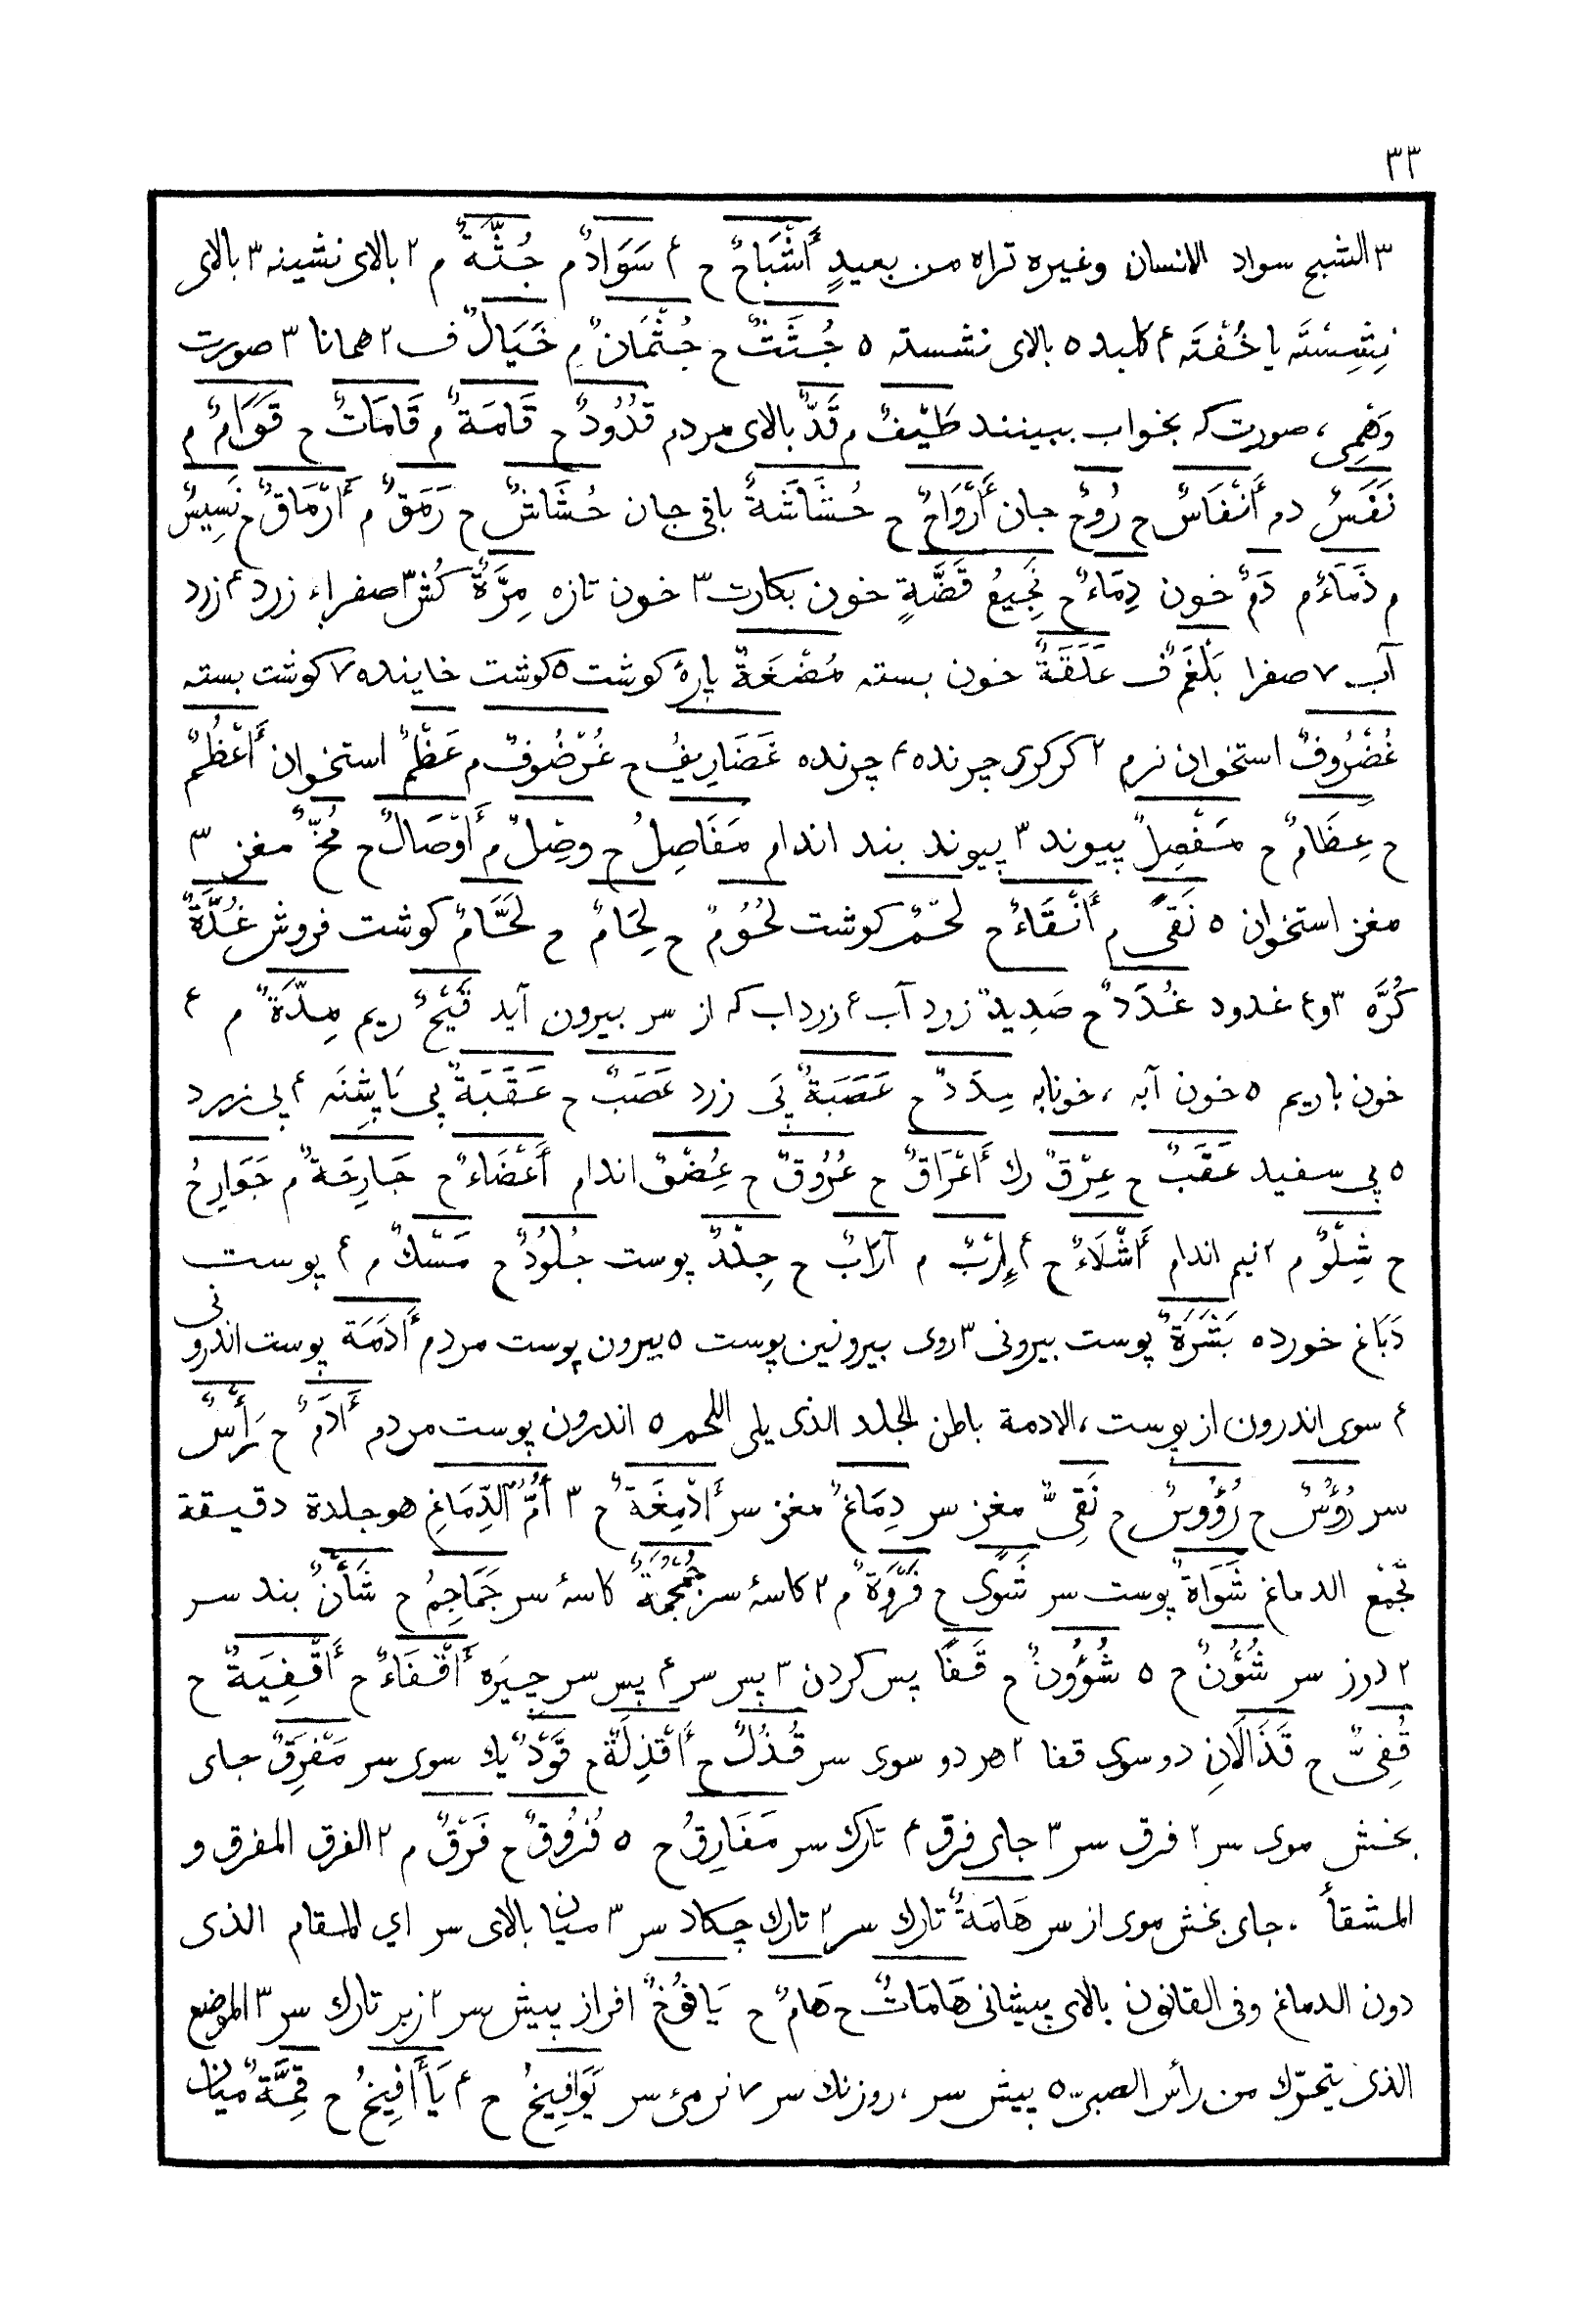 ٣٣
٣ الشبح سواد الانسان وغيره تراه من بعيدٍ أَشْبَاحٌ ح ۴ سَوَادٌ م جُثَّةٌ م ٢ بالای نشینه ٣ بالای
نِشِسْتَه یا خُفْتَه ۴ کلبد ۵ بالای نشسته ۵ جُثَثٌ ح جُثْمَانٌ م خَيَالٌ ف ٢ همانا ٣ صورت
وَهْمِی ، صورت که بخواب ببینند طَيْفٌ م قَدٌّ بالای مردم قُدُودٌ ح قَامَةٌ م قَامَاتٌ ح قَوَامٌ م
نَفَسٌ دم أَنْفَاسٌ ح رُوحٌ جان أَرْوَاحٌ ح حُشَاشَةٌ باقی جان حُشَاشٌ ح رَمَقٌ م أَرْمَاقٌ ح نَسِيسٌ
م ذَمَاءٌ م دَمٌ خون دِمَاءٌ ح نَجِيعُ قَضَّةٍ خون بکارت ٣ خون تازه مِرَّةٌ کُش ٣ صفراء زرد ۴ زرد
آب ٧ صفرا بَلْغَمٌ ف عَلَقَةٌ خون بسته مُضْغَةٌ پارۀ کوشت ۵ کوشت خاینده ٧ کوشت بسته
غُضْرُوفٌ استخوان نرم ٢ کرکری چرنده ۴ چرنده غَضَارِيفُ ح غُرْضُوفٌ م عَظْمٌ استخوان أَعْظُمٌ
ح عِظَامٌ ح مَفْصِلٌ پیوند ٣ پیوند بند اندام مَفَاصِلُ ح وِصْلٌ م أَوْصَالٌ ح مُخٌّ مغز ٣
مغز استخوان ۵ نَقیً م أَنْقَاءٌ ح لَحْمٌ کوشت لُحُومٌ ح لِحَامٌ ح لَحَّامٌ کوشت فروش غُدَّةٌ
کُرَّه ٣ و ۴ غدود غُدَدٌ ح صَدِيدٌ زرد آب ۴ زرداب که از سر بیرون آید قَيْحٌ ریم مِدَّةٌ م ۴
خون باریم ۵ خون آبه ، خونابه مِدَدٌ ح عَصَبَةٌ پَی زرد عَصَبٌ ح عَقَبَةٌ پی پَاشِنَه ۴ پی زرد
۵ پی سفید عَقَبٌ ح عِرْقٌ رك أَعْرَاقٌ ح عُرُوقٌ ح عِضْوٌ اندام أَعْضَاءٌ ح جَارِحَةٌ م جَوَارِحُ
ح شِلْوٌ م ٢ نیم اندام أَشْلَاءٌ ح ۴ إِرْبٌ م آرَابٌ ح جِلْدٌ پوست جُلُودٌ ح مَسْكٌ م ۴ پوست
دَبَاغ خورده بَشَرَةٌ پوست بیرونی ٣ روی بیرونین پوست ۵ بیرون پوست مردم أَدَمَة پوست اندرونی
۴ سوی اندرون از پوست ، الادمة باطن الجلد الذی یلی اللحم ۵ اندرون پوست مردم أَدَمٌ ح رَأْسٌ
سر رُؤُسٌ ح رُؤُوسٌ ح نَقِیٌّ مغز سر دِمَاغٌ مغز سر أَدْمِغَةٌ ح ٣ أُمُّ الدِّمَاغِ هو جلدة دقيقة
تجْمَع الدماغ شَوَاةٌ پوست سر شَوًی ح فَرْوَةٌ م ٢ کاسۀ سر جُمْجُمَةٌ کاسۀ سر جَمَاجِمُ ح شَأْنٌ بند سر
٢ درز سر شُؤُنٌ ح ۵ شُؤُونٌ ح قَفًا پس کردن ٣ پس سر ۴ پس سر چِیَره أَقْفَاءٌ ح أَقْفِيَةٌ ح
قُفِیٌّ ح قَذَالَانِ دو سوی قفا ٢ هر دو سوی سر قُذُلٌ ح أَقْذِلَةٌ ح قَوْدٌ یك سوی سر مَفْرِقٌ جای
بخش موی سر ٢ فرق سر ٣ جای فرق ۴ تارك سر مَفَارِقُ ح ۵ فُرُوقٌ ح فَرْقٌ م ٢ الفرق المفرق و
المشقأ ، جای بخش موی از سر هَامَةٌ تارك سر ٢ تارك چکاد سر ٣ میان بالای سر اي المقام الذی
دون الدماغ وفی القانون بالای پیشانی هَامَاتٌ ح هَامٌ ح يَافُوخٌ افراز پیش سر ٢ زبر تارك سر ٣ الموضع
الذی یتحرّك من رأس الصبیّ ۵ پیش سر ، روزنك سر ٧ نرمئ سر يَوَافِيخُ ح ۴ يَأَافِيخُ ح قِمَّةٌ میان